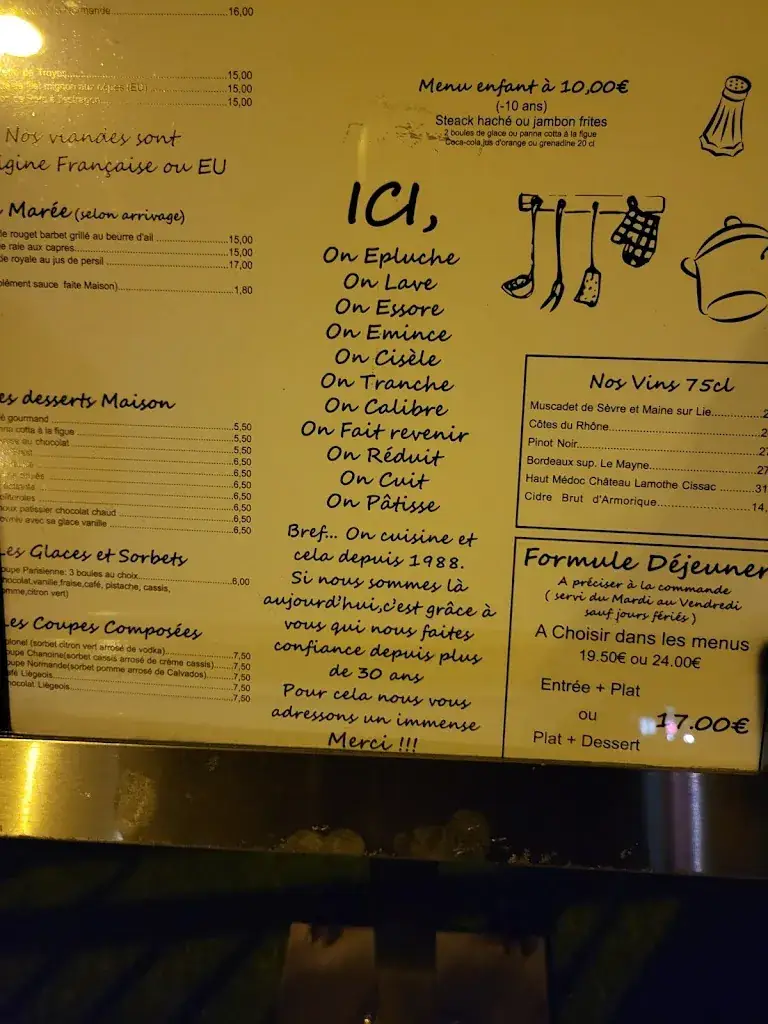 16,00
15,00
15,00
15,00
Nos viandes sont
igine Française ou EU
Marée (selon arrivage)
e rouget barbet grillé au beurre d'ail 15,00
e raie aux capres 15,00
de royale au jus de persil 17,00
plément sauce faite Maison) 1,80
es desserts Maison
é gourmand 5,50
nna cotta à la figue 5,50
au chocolat 5,50
6,50
6,50
6,50
6,50
6,50
oux patissier chocolat chaud 6,50
avec sa glace vanille 6,50
Les Glaces et Sorbets
oupe Parisienne: 3 boules au choix 6,00
hocolat,vanille,fraise,café, pistache, cassis,
omme,citron vert)
Les Coupes Composées
olonel (sorbet citron vert arrosé de vodka) 7,50
oupe Chanoine(sorbet cassis arrosé de crème cassis) 7,50
oupe Normande(sorbet pomme arrosé de Calvados) 7,50
afé Liégeois 7,50
hocolat Liégeois 7,50
Menu enfant à 10,00€
(-10 ans)
Steack haché ou jambon frites
2 boules de glace ou panna cotta à la figue
Coca-cola,jus d'orange ou grenadine 20 cl
ICI,
On Epluche
On Lave
On Essore
On Emince
On Cisèle
On Tranche
On Calibre
On Fait revenir
On Réduit
On Cuit
On Pâtisse
Bref... On cuisine et
cela depuis 1988.
Si nous sommes là
aujourd'hui,c'est grâce à
vous qui nous faites
confiance depuis plus
de 30 ans
Pour cela nous vous
adressons un immense
Merci !!!
Nos Vins 75cl
Muscadet de Sèvre et Maine sur Lie
Côtes du Rhône
Pinot Noir
Bordeaux sup. Le Mayne
Haut Médoc Château Lamothe Cissac
Cidre Brut d'Armorique
Formule Déjeuner
A préciser à la commande
( servi du Mardi au Vendredi
sauf jours fériés )
A Choisir dans les menus
19.50€ ou 24.00€
Entrée + Plat
ou 17.00€
Plat + Dessert